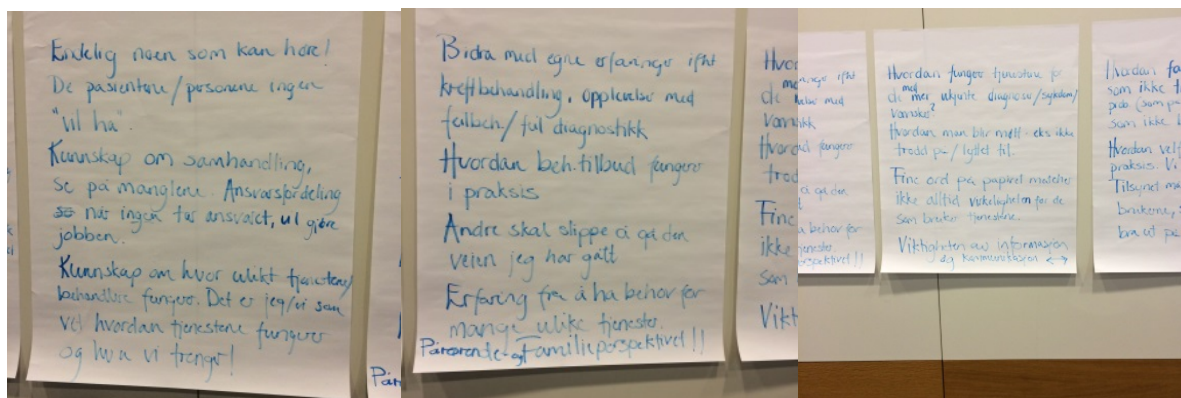 Endelig noen som kan høre!
De pasientene/personene ingen
"vil ha".
Kunnskap om samhandling,
se på manglene. Ansvarsfordeling
når ingen tar ansvaret, vil gjøre
jobben.
Kunnskap om hvor ulikt tjenestene/
behandlere fungerer. Det er jeg/vi som
vet hvordan tjenestene fungerer
og hva vi trenger!
Bidra med egne erfaringer ifht
kreftbehandling, opplevelse med
feilbeh/feil diagnostikk
Hvordan beh.tilbud fungerer
i praksis
Andre skal slippe å gå den
veien jeg har gått
Erfaring fra å ha behov for
mange ulike tjenester.
Pårørende- og Familieperspektivet!!
Hvordan fungerer tjenestene for
de med mer utjente diagnoser/sykdom/
vansker?
Hvordan man blir møtt - eks ikke
trodd på/lyttet til.
Fine ord på papiret matcher
ikke alltid virkeligheten for de
som bruker tjenestene.
Viktigheten av informasjon
og kommunikasjon ↔
Hvordan
som ikke
som ikke
Hvordan
praksis. Vi
Tilsynet
brukerne,
bra ut på